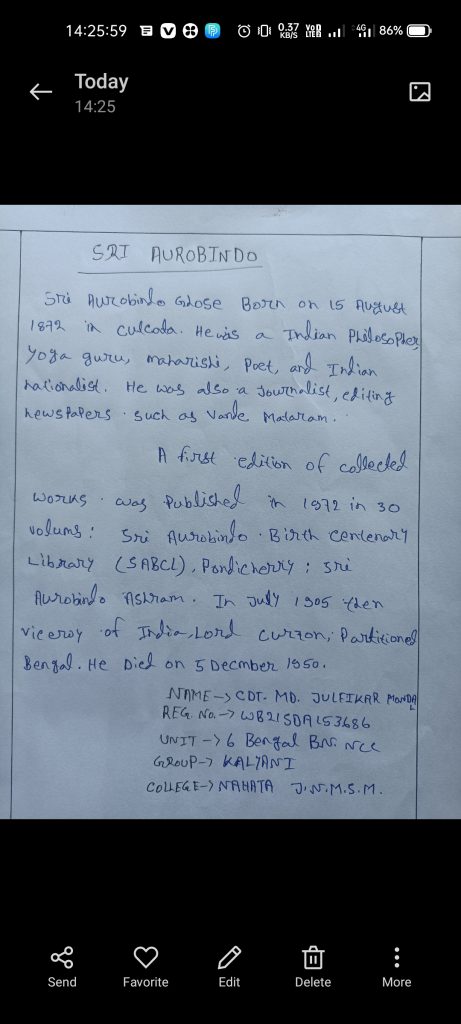 14:25:59 0.37 KB/S VoD LTE 4G 86%
Today
14:25
SRI AUROBINDO
Sri Aurobindo Ghose Born on 15 August
1872 in culcota. He is a Indian Philosopher,
Yoga guru, maharishi, Poet, and Indian
nationalist. He was also a Journalist, editing
newspapers such as Vande Mataram.
A first edition of collected
works was Published in 1972 in 30
volums: Sri Aurobindo Birth centenary
Library (SABCL), Pondicherry; sri
Aurobindo Ashram. In July 1905 then
viceroy of India, Lord curzon, Partitioned
Bengal. He Died on 5 Decmber 1950.
NAME -> CDT. MD. JULFIKAR MONDAL
REG. No. -> WB21SDA153686
UNIT -> 6 Bengal BN. NCC
GROUP -> KALYANI
COLLEGE -> NAHATA J.N.M.S.M.
Send Favorite Edit Delete More